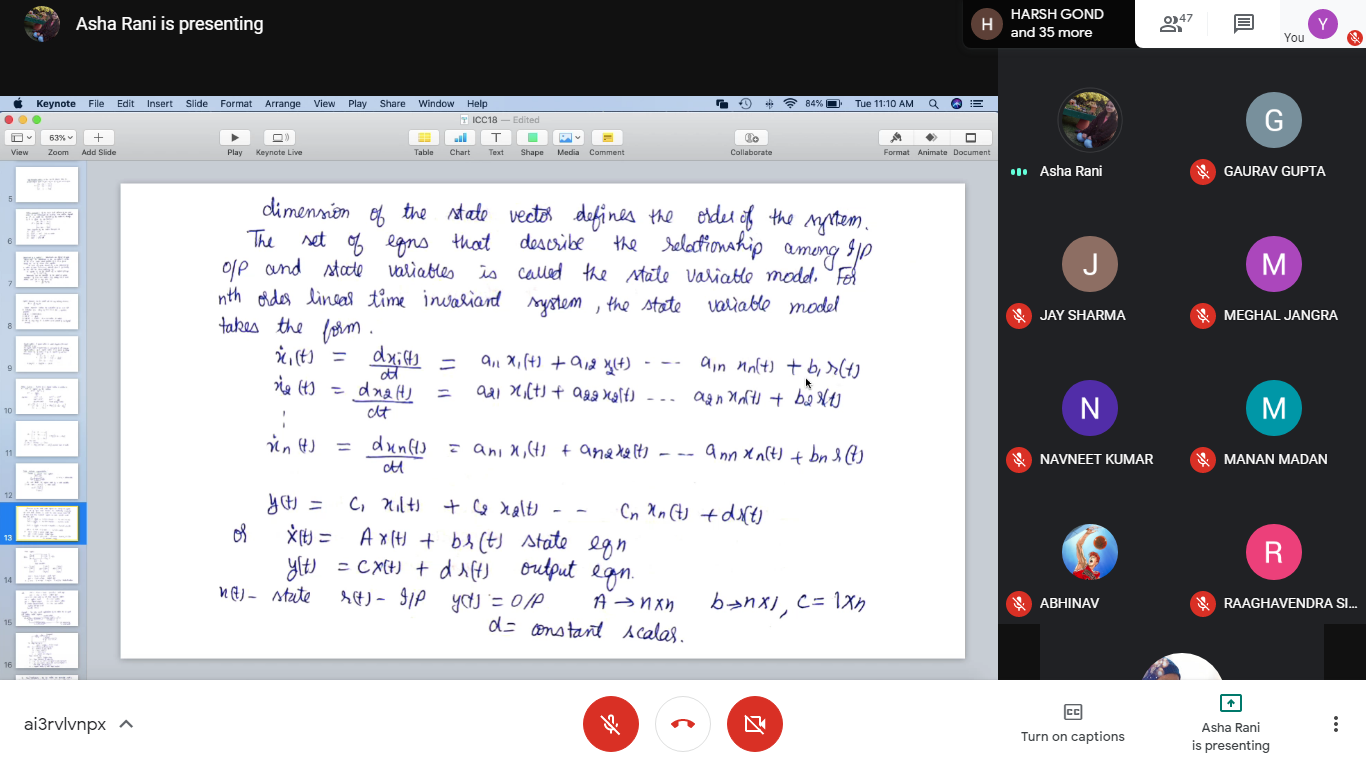 Asha Rani is presenting
H
HARSH GOND
and 35 more
47
You
Y
Keynote File Edit Insert Slide Format Arrange View Play Share Window Help
84% Tue 11:10 AM
ICC18 — Edited
63%
View Zoom Add Slide
Play Keynote Live
Table Chart Text Shape Media Comment
Collaborate
Format Animate Document
5
6
7
8
9
10
11
12
13
14
15
16
dimension of the state vector defines the order of the system.
The set of eqns that describe the relationship among I/P
O/P and state variables is called the state variable model. For
nth order linear time invariant system, the state variable model
takes the form.
ẋ₁(t) = dx₁(t)/dt = a₁₁ x₁(t) + a₁₂ x₂(t) ---- a₁n xn(t) + b₁ r(t)
ẋ₂(t) = dx₂(t)/dt = a₂₁ x₁(t) + a₂₂ x₂(t) --- a₂n xn(t) + b₂ r(t)
⋮
ẋn(t) = dxn(t)/dt = an₁ x₁(t) + an₂ x₂(t) ---- ann xn(t) + bn r(t)
y(t) = C₁ x₁(t) + C₂ x₂(t) -- Cn xn(t) + d r(t)
or ẋ(t) = A x(t) + b r(t) state eqn
y(t) = C x(t) + d r(t) output eqn.
x(t) - state r(t) - I/P y(t) = O/P A → n×n b → n×1, C = 1×n
d = constant scalar.
Asha Rani
G
GAURAV GUPTA
J
JAY SHARMA
M
MEGHAL JANGRA
N
NAVNEET KUMAR
M
MANAN MADAN
ABHINAV
R
RAAGHAVENDRA SI...
ai3rvlvnpx
CC
Turn on captions
Asha Rani
is presenting